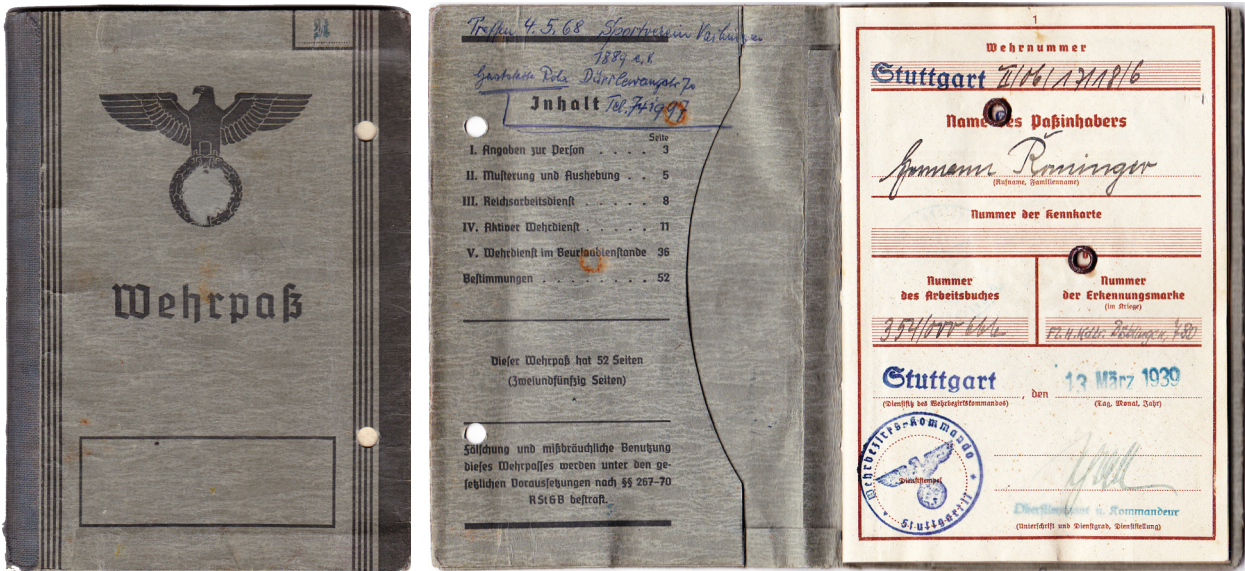 Wehrpaß
Treffen 4.5.68 Sportverein Vaihingen
1889 e.V.
Gaststätte Dürrlewangstr 70
Tel. 741997
Inhalt
Seite
I. Angaben zur Person . . . . 3
II. Musterung und Aushebung . . 5
III. Reichsarbeitsdienst . . . . . 8
IV. Aktiver Wehrdienst . . . . . 11
V. Wehrdienst im Beurlaubtenstande 36
Bestimmungen . . . . . . . . 52
Dieser Wehrpaß hat 52 Seiten
(Zweiundfünfzig Seiten)
Fälschung und mißbräuchliche Benutzung
dieses Wehrpasses werden unter den ge-
setzlichen Voraussetzungen nach §§ 267-70
RStGB bestraft.
1
Wehrnummer
Stuttgart II/06/17/18/6
Name des Paßinhabers
Hermann Röninger
(Rufname, Familienname)
Nummer der Kennkarte
Nummer
des Arbeitsbuches
Nummer
der Erkennungsmarke
(im Kriege)
354/000
Fl. H. Kdtr. Böblingen, 780
Stuttgart, den 13 März 1939
(Dienstsitz des Wehrbezirkskommandos) (Tag, Monat, Jahr)
Wehrbezirks-Kommando
Dienststempel
u. Kommandeur
(Unterschrift und Dienstgrad, Dienststellung)